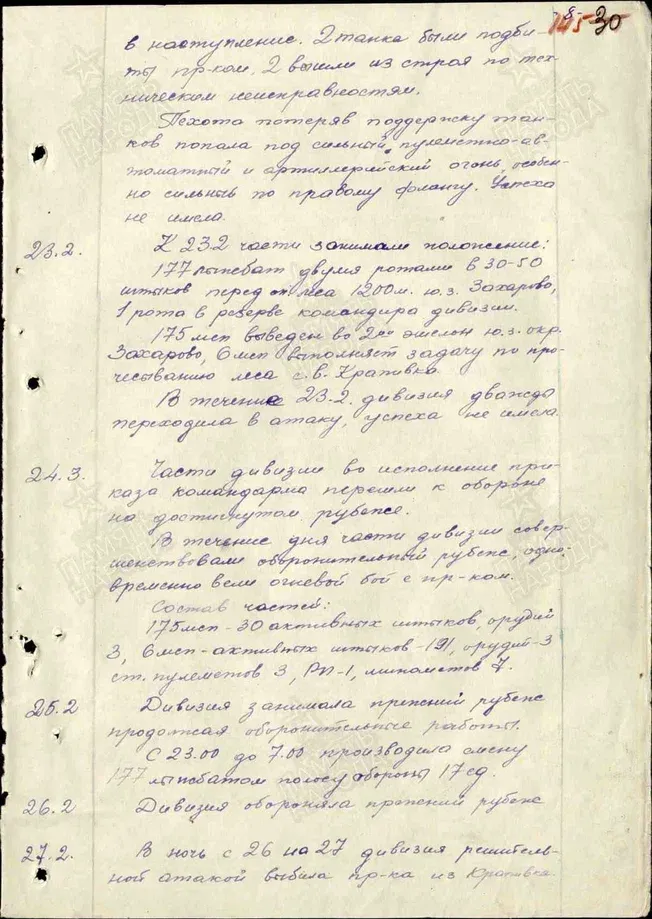 8-
105 30
в наступление. 2 танка были подби-
ты пр-ком, 2 вышли из строя по тех-
ническим неисправностям.
Пехота потеряв поддержку тан-
ков попала под сильный пулеметно-ав-
томатный и артиллерийский огонь, особен-
но сильный по правому флангу. Успеха
не имела.
23.2. К 23.2 части занимали положение:
177 лыжбат двумя ротами в 30-50
штыков перед леса 1200 м. ю.з. Захарово,
1 рота в резерве командира дивизии.
175 мсп выведен во 2ой эшелон ю.з. окр.
Захарово, 6 мсп выполняет задачу по про-
чесыванию леса с.в. Крапивка.
В течение 23.2. дивизия дважды
переходила в атаку, успеха не имела
24.3. Части дивизии во исполнение при-
каза командарма перешли к обороне
на достигнутом рубеже.
В течение дня части дивизии совер-
шенствовали оборонительный рубеж, одно-
временно вели огневой бой с пр-ком.
Состав частей:
175 мсп - 30 активных штыков, орудий
3, 6 мсп - активных штыков - 191, орудий - 3
ст. пулеметов 3, РП-1, минометов 7.
25.2 Дивизия занимала прежний рубеж
продолжая оборонительные работы.
С 23.00 до 7.00 производила смену
177 лыжбатом полосу обороны 17 сд.
26.2 Дивизия обороняла прежний рубеж
27.2. В ночь с 26 на 27 дивизия решитель-
ной атакой выбила пр-ка из Крапивка.